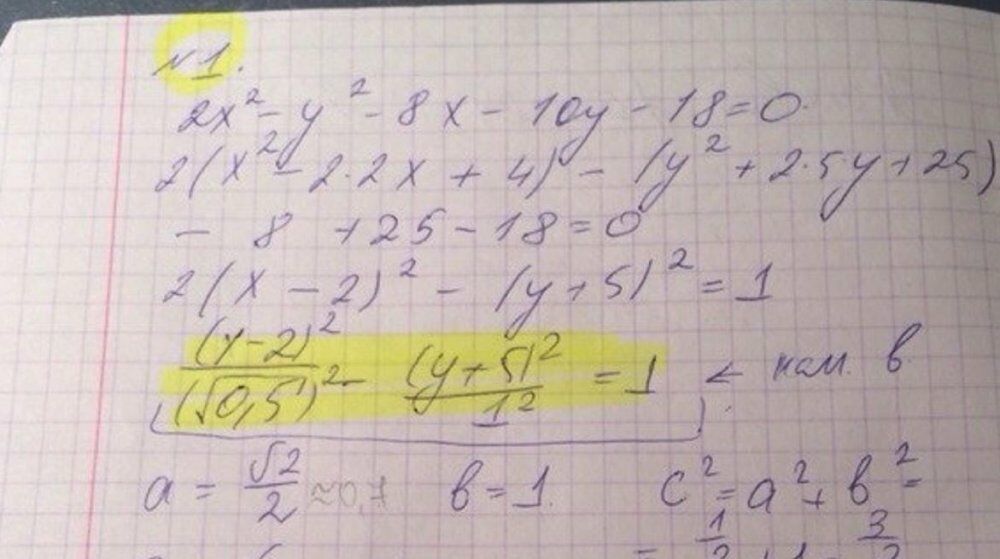 №1.
2x² - y² - 8x - 10y - 18 = 0
2(x² - 2·2x + 4) - (y² + 2·5y + 25)
- 8 + 25 - 18 = 0
2(x - 2)² - (y + 5)² = 1
(x-2)²/(√0,5)² - (y+5)²/1² = 1 ←
a = √2/2 ≈0,7 b = 1 c² = a² + b² =